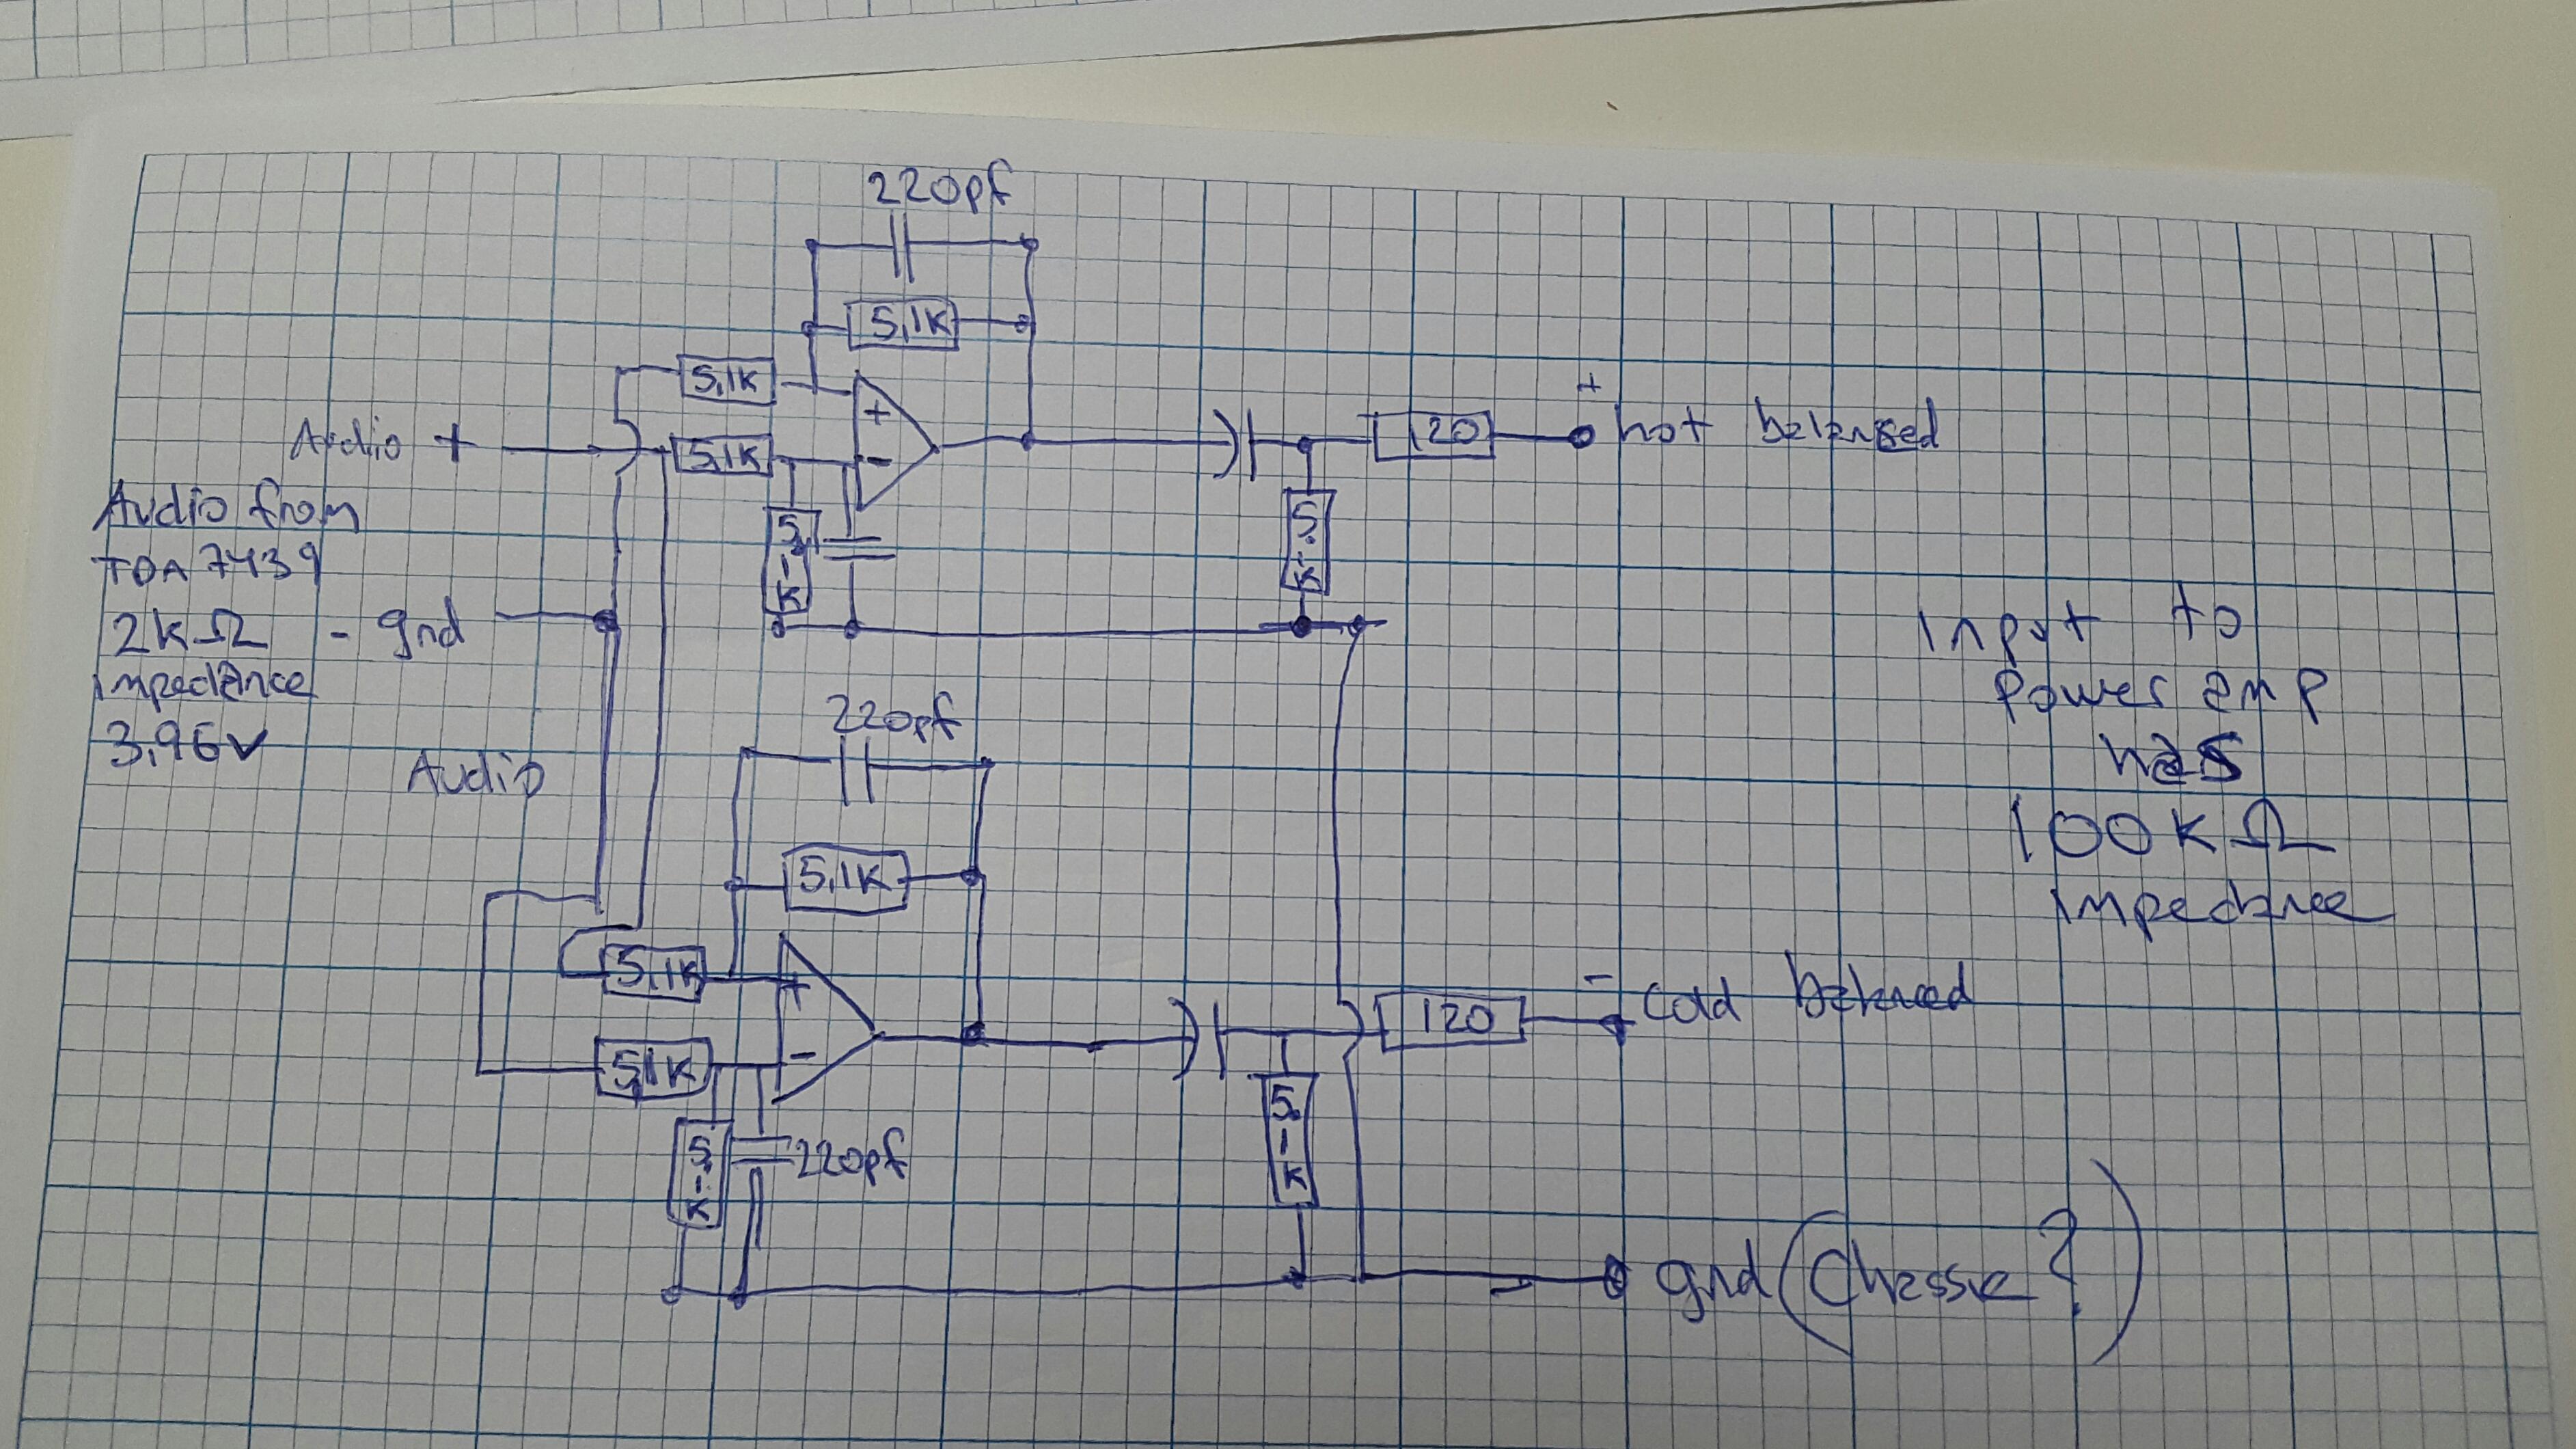 220pf
5,1K
5,1K
+
Audio + 5,1K - 120 + hot balansed
Audio from
TDA 7439
5,1K
5.1K
2kΩ - gnd
impedance
3,96V
Input to
power amp
has
100KΩ
impedance
220pf
Audio
5,1K
5,1K + 120 - cold balanced
5,1K -
5.1K 220pf
5.1K
gnd (Chassie?)